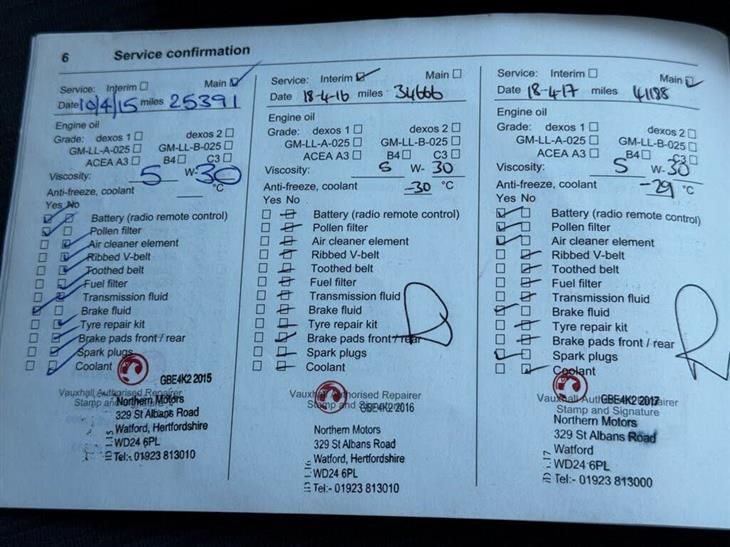 6 Service confirmation
Service: Interim Main
Date 10/4/15 miles 25391
Engine oil
Grade: dexos 1 dexos 2
GM-LL-A-025 GM-LL-B-025
ACEA A3 B4 C3
Viscosity: 5 W- 30
Anti-freeze, coolant °C
Yes No
Battery (radio remote control)
Pollen filter
Air cleaner element
Ribbed V-belt
Toothed belt
Fuel filter
Transmission fluid
Brake fluid
Tyre repair kit
Brake pads front / rear
Spark plugs
Coolant
GBE4K2 2015
Vauxhall Authorised Repairer
Stamp and
Northern Motors
329 St Albans Road
Watford, Hertfordshire
WD24 6PL
Tel:- 01923 813010
Service: Interim Main
Date 18-4-16 miles 34666
Engine oil
Grade: dexos 1 dexos 2
GM-LL-A-025 GM-LL-B-025
ACEA A3 B4 C3
Viscosity: 5 W- 30
Anti-freeze, coolant -30 °C
Yes No
Battery (radio remote control)
Pollen filter
Air cleaner element
Ribbed V-belt
Toothed belt
Fuel filter
Transmission fluid
Brake fluid
Tyre repair kit
Brake pads front / rear
Spark plugs
Coolant
Vauxhall Authorised Repairer
Stamp and Signature
GBE4K2 2016
Northern Motors
329 St Albans Road
Watford, Hertfordshire
WD24 6PL
Tel:- 01923 813010
Service: Interim Main
Date 18-4-17 miles 41188
Engine oil
Grade: dexos 1 dexos 2
GM-LL-A-025 GM-LL-B-025
ACEA A3 B4 C3
Viscosity: 5 W- 30
Anti-freeze, coolant -29 °C
Yes No
Battery (radio remote control)
Pollen filter
Air cleaner element
Ribbed V-belt
Toothed belt
Fuel filter
Transmission fluid
Brake fluid
Tyre repair kit
Brake pads front / rear
Spark plugs
Coolant
GBE4K2 2017
Vauxhall Authorised Repairer
Stamp and Signature
Northern Motors
329 St Albans Road
Watford
WD24 6PL
Tel:- 01923 813000